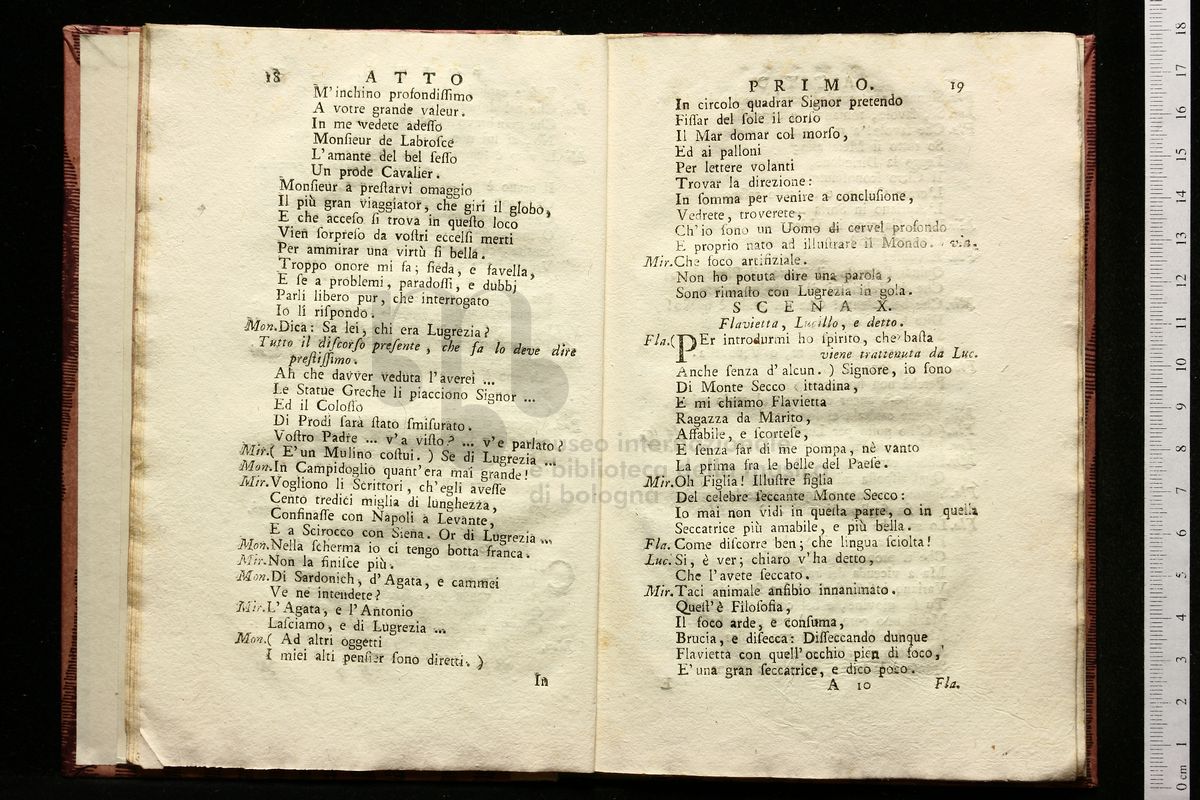 18 ATTO
M'inchino profondiſſimo
A votre grande valeur.
In me vedete adeſſo
Monſieur de Labroſce
L'amante del bel ſeſſo
Un prode Cavalier.
Monſieur a preſtarvi omaggio
Il più gran viaggiator, che giri il globo,
E che acceſo ſi trova in queſto loco
Vien ſorpreſo da voſtri eccelſi merti
Per ammirar una virtù ſi bella.
Troppo onore mi fa; ſieda, e favella,
E ſe a problemi, paradoſſi, e dubbj
Parli libero pur, che interrogato
Io li riſpondo.
Mon. Dica: Sa lei, chi era Lugrezia?
Tutto il diſcorſo preſente, che fa lo deve dire
preſtiſſimo.
Ah che davver veduta l'averei ...
Le Statue Greche li piacciono Signor ...
Ed il Coloſſo
Di Prodi ſarà ſtato ſmiſurato.
Voſtro Padre ... v'a viſto? ... v'e parlato?
Mir. ( E'un Mulino coſtui. ) Se di Lugrezia ...
Mon. In Campidoglio quant'era mai grande!
Mir. Vogliono li Scrittori, ch'egli aveſſe
Cento tredici miglia di lunghezza,
Confinaſſe con Napoli a Levante,
E a Scirocco con Siena. Or di Lugrezia ...
Mon. Nella ſcherma io ci tengo botta franca.
Mir. Non la finiſce più.
Mon. Di Sardonich, d'Agata, e cammei
Ve ne intendete?
Mir. L'Agata, e l'Antonio
Laſciamo, e di Lugrezia ...
Mon. ( Ad altri oggetti
I miei alti penſier ſono diretti. )
In
PRIMO. 19
In circolo quadrar Signor pretendo
Fiſſar del ſole il corſo
Il Mar domar col morſo,
Ed ai palloni
Per lettere volanti
Trovar la direzione:
In ſomma per venire a concluſione,
Vedrete, troverete,
Ch'io ſono un Uomo di cervel profondo
E proprio nato ad illuſtrare il Mondo. via.
Mir. Che foco artifiziale.
Non ho potuta dire una parola,
Sono rimaſto con Lugrezia in gola.
SCENA X.
Flavietta, Lucillo, e detto.
Fla. ( PEr introdurmi ho ſpirito, che baſta
viene trattenuta da Luc.
Anche ſenza d'alcun. ) Signore, io ſono
Di Monte Secco Cittadina,
E mi chiamo Flavietta
Ragazza da Marito,
Affabile, e ſcorteſe,
E ſenza far di me pompa, nè vanto
La prima fra le belle del Paeſe.
Mir. Oh Figlia! Illuſtre figlia
Del celebre ſeccante Monte Secco:
Io mai non vidi in queſta parte, o in quella
Seccatrice più amabile, e più bella.
Fla. Come diſcorre ben; che lingua ſciolta!
Luc. Si, è ver; chiaro v'ha detto,
Che l'avete ſeccato.
Mir. Taci animale anfibio innanimato.
Queſt'è Filoſofia,
Il foco arde, e conſuma,
Brucia, e diſecca: Diſſeccando dunque
Flavietta con quell'occhio pien di foco,
E'una gran ſeccatrice, e dico poco.
A 10 Fla.
museo internazionale
e biblioteca della musica
di bologna